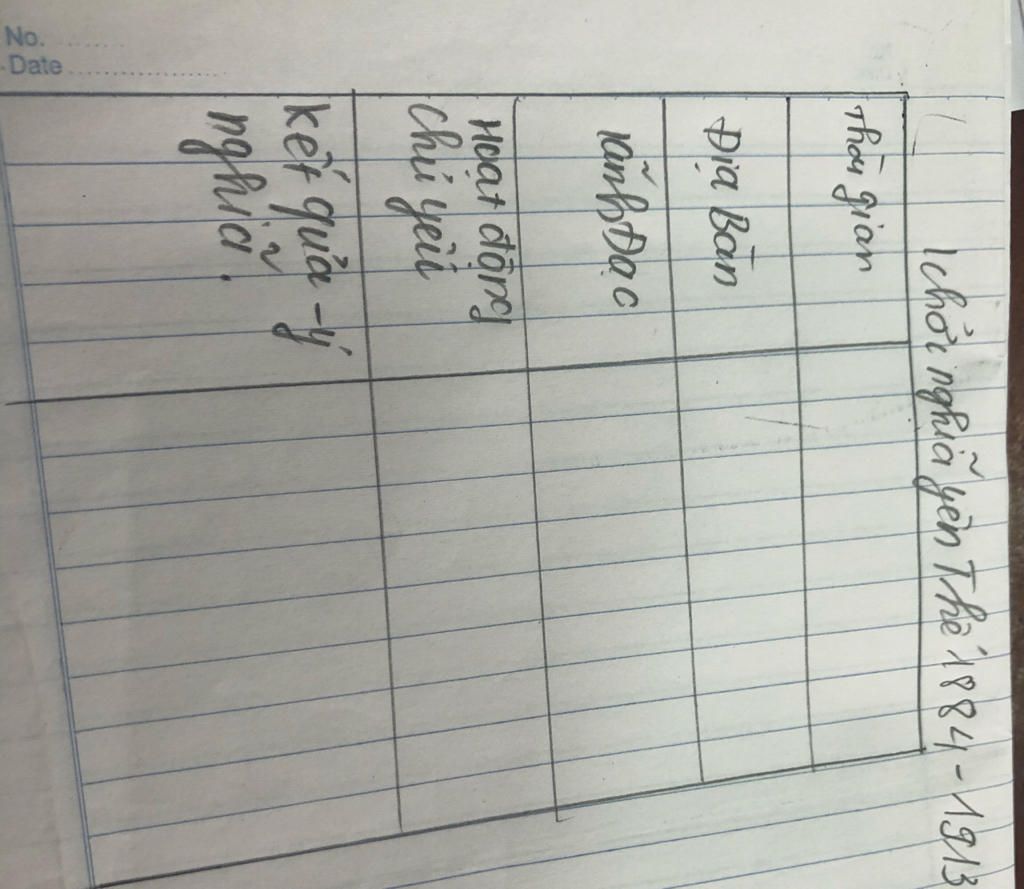 No.
Date
Khởi nghĩa yên Thế 1884-1913
Thời gian
Địa Bàn
lãnh Đạo
Hoạt động
chủ yếu
kết quả - ý
nghĩa.